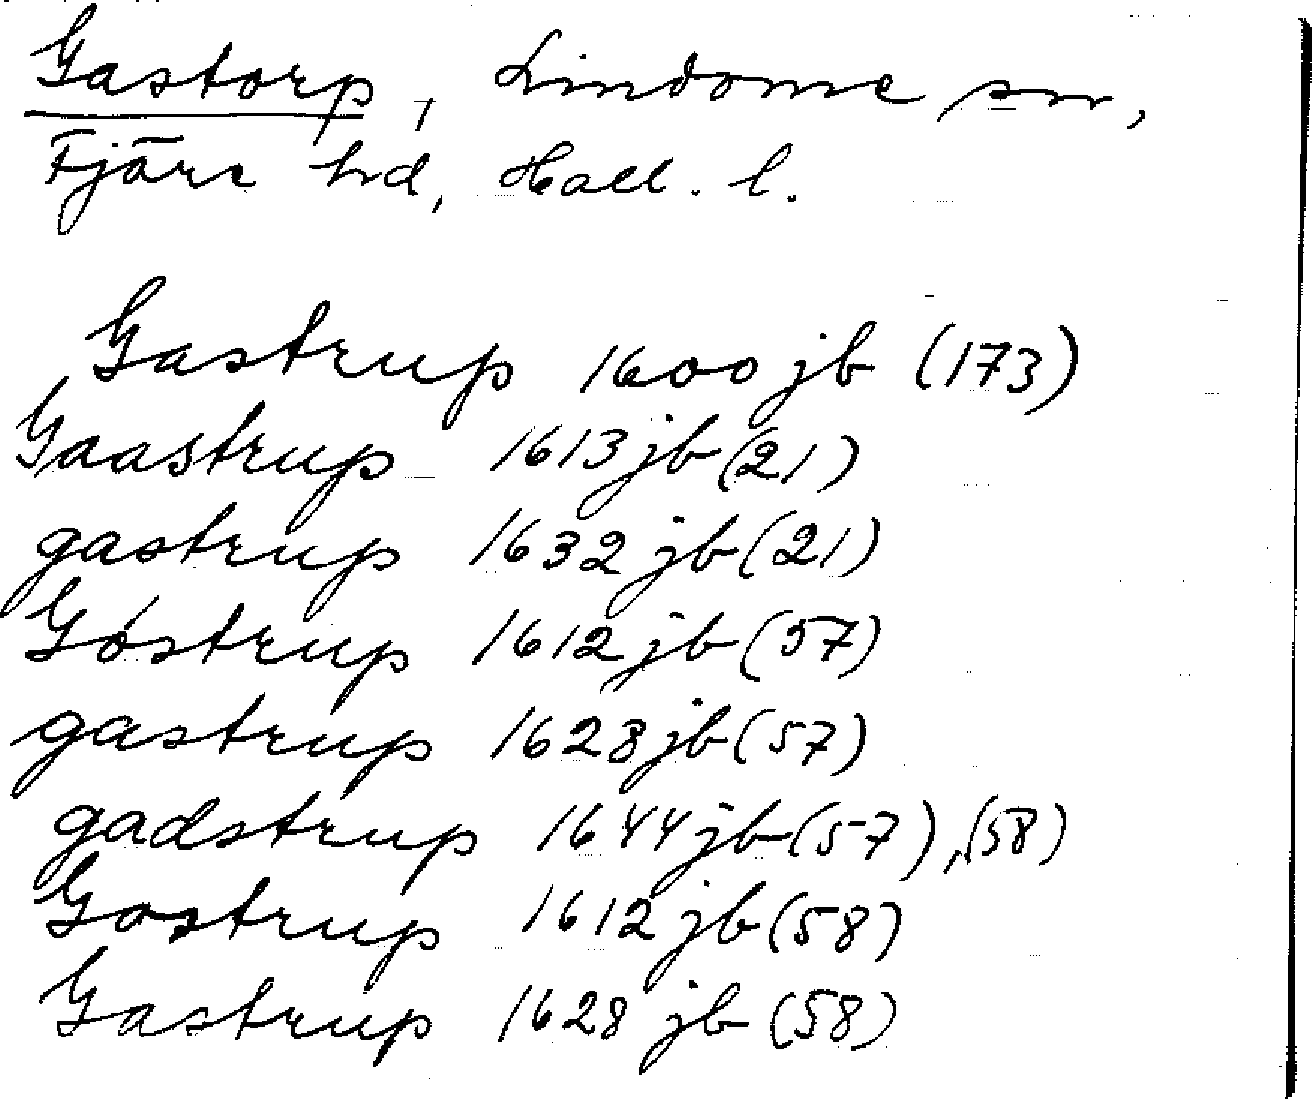 Gastorp, Lindome sn,
Fjäre hd, Hall. l.
Gastrup 1600 jb (173)
Gaastrup 1613 jb (21)
gastrup 1632 jb (21)
Góstrup 1612 jb (57)
gastrup 1628 jb (57)
gadstrup 1644 jb (57), (58)
Gostrup 1612 jb (58)
Gastrup 1628 jb (58)